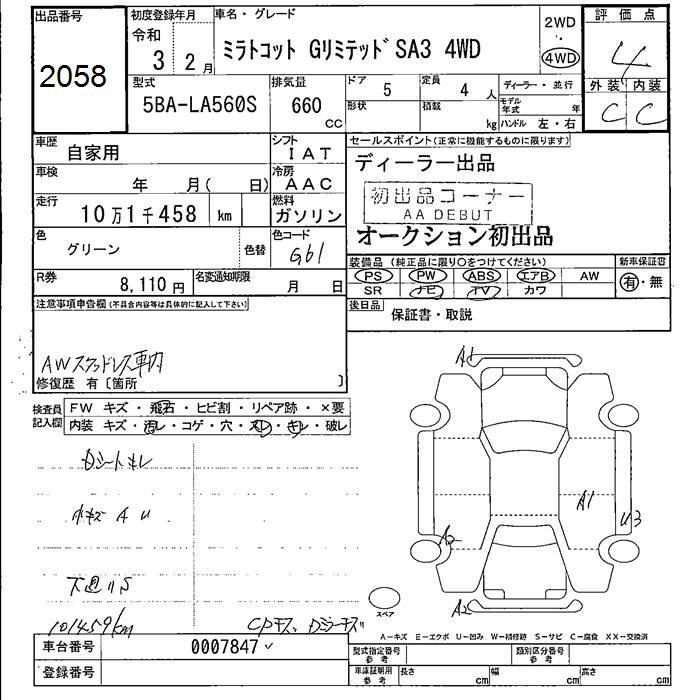 出品番号
2058
初度登録年月
令和
3 2月
車名・グレード
ミラトコット Gリミテッド SA3 4WD
2WD
・
4WD
評価点
4
外装 内装
C C
型式
5BA-LA560S
排気量
660
CC
ドア
5
定員
4 人
形状
積載
kg
ディーラー・並行
モデル年式 年
ハンドル 左・右
車歴
自家用
シフト
IAT
車検
年 月( 日)
冷房
AAC
走行
10万1千458 km
燃料
ガソリン
色
グリーン
色替
色コード
G61
R券
8,110 円
名変通知期限
月 日
セールスポイント(正常に機能するものに限ります)
ディーラー出品
初出品コーナー
AA DEBUT
オークション初出品
装備品(純正品に限り〇をつけてください)
PS PW ABS エアB AW
SR ナビ TV カワ
新車保証書
有・無
後日品
保証書・取説
注意事項申告欄(不具合内容等は具体的に記入して下さい)
AWスタッドレス車内
修復歴 有〔箇所 〕
検査員記入欄
FW キズ・飛石・ヒビ割・リペア跡・×要
内装 キズ・汚レ・コゲ・穴・スレ・キレ・破レ
Dシートキレ
小キズ A U
下廻りS
101459km
A1
A1
U3
A2
A2
スペア
A−キズ E−エクボ U−凹み W−補修跡 S−サビ C−腐食 XX−交換済
車台番号
0007847
登録番号
型式指定番号
参考
類別区分番号
参考
車庫証明用
参考
長さ cm
幅 cm
高さ cm